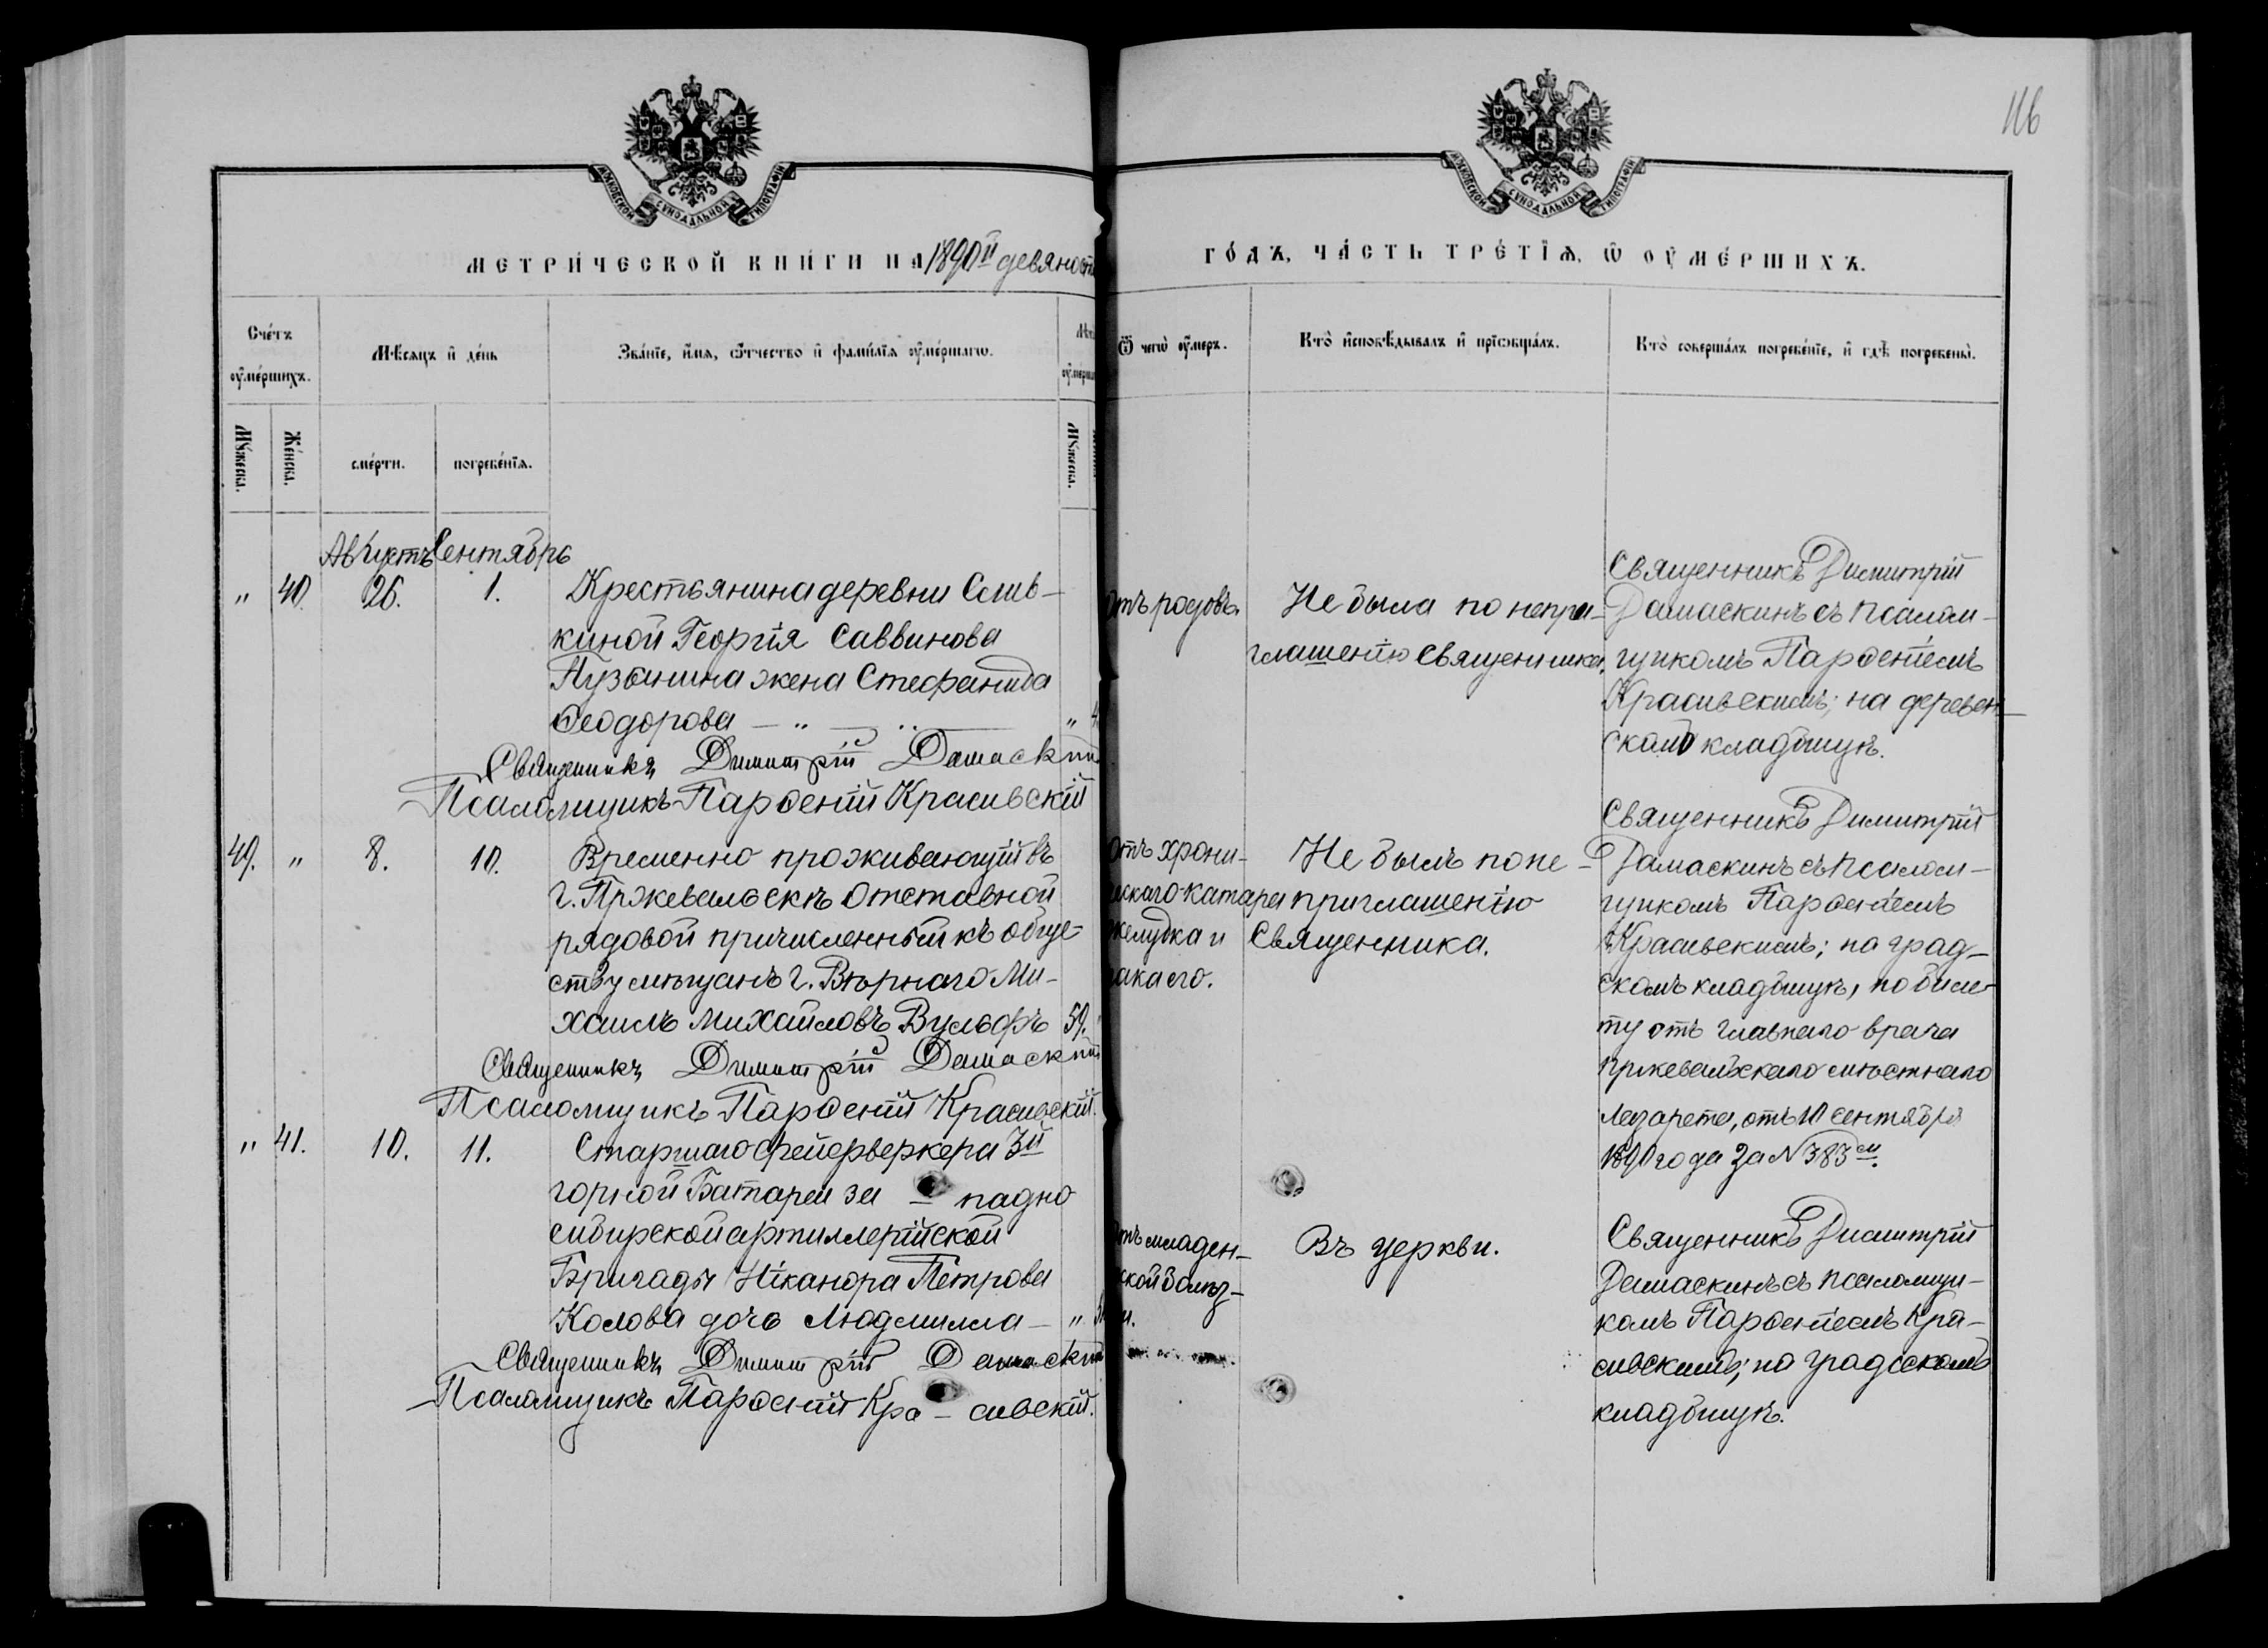 116
МОСКОВСКОЙ СѴНОДАЛЬНОЙ ТИПОГРАФІИ
МОСКОВСКОЙ СѴНОДАЛЬНОЙ ТИПОГРАФІИ
МЕТРИ́ЧЕСКОЙ КНИ́ГИ НА 1890й девяност
ГО́ДЪ, ЧА́СТЬ ТРЕ́ТІѦ, Ѿ ОУ҆МЕ́РШИХЪ.
Сче́тъ оу҆ме́ршихъ.
Мѣ́сяцъ и҆ де́нь
Зва́нїе, и҆́мя, ѻ҆́тчество и҆ фами́лїя оу҆ме́ршагѡ.
Ѿ чегѡ̀ оу҆́меръ.
Кто̀ и҆сповѣ́дывалъ и҆ прїѡбща́лъ.
Кто̀ соверша́лъ погребе́нїе, и҆ гдѣ̀ погребены̀.
Мꙋ́жеска.
Же́нска.
сме́рти.
погребе́нїя.
Мꙋ́жеска.
Августъ Сентябрь
„ 40. 26. 1. Крестьянина деревни Слив-
киной Георгія Саввинова
Пузынина жена Стефанида
Ѳеодорова — „ — „ — „
Священникъ Димитрій Дамаскин
Псаломщикъ Парѳеній Красивскій
Отъ родовъ.
Не была по непри-
глашенію священника.
Священникъ Димитрій
Дамаскинъ съ псалом-
щикомъ Парѳеніемъ
Красивскимъ; на деревен-
скомъ кладбищѣ.
49. „ 8. 10. Временно проживающій въ
г. Пржевальскѣ отставной
рядовой причисленный къ обще-
ству мѣщанъ г. Вѣрнаго Ми-
хаилъ Михайловъ Вульфъ 59.
Священникъ Димитрій Дамаскин
Псаломщикъ Парѳеній Красивскій.
Отъ хрони-
ческаго катара
желудка и
рака его.
Не былъ по не-
приглашенію
священника.
Священникъ Димитрій
Дамаскинъ съ псалом-
щикомъ Парѳеніемъ
Красивскимъ; на град-
скомъ кладбищѣ, по биле-
ту отъ главнаго врача
Пржевальскаго мѣстнаго
лазарета, отъ 10 сентября
1890 года за № 383м.
„ 41. 10. 11. Старшаго фейерверкера 3й
горной Батареи за — падно
сибирской артиллерійской
Бригады Никанора Петрова
Колова дочь Людмилла — „
Священникъ Димитрій Дамаскин
Псаломщикъ Парѳеній Кра — сивскій.
Отъ младен-
ской болѣз-
ни.
Въ церкви.
Священникъ Димитрій
Дамаскинъ съ псаломщи-
комъ Парѳеніемъ Кра-
сивскимъ; на градскомъ
кладбищѣ.